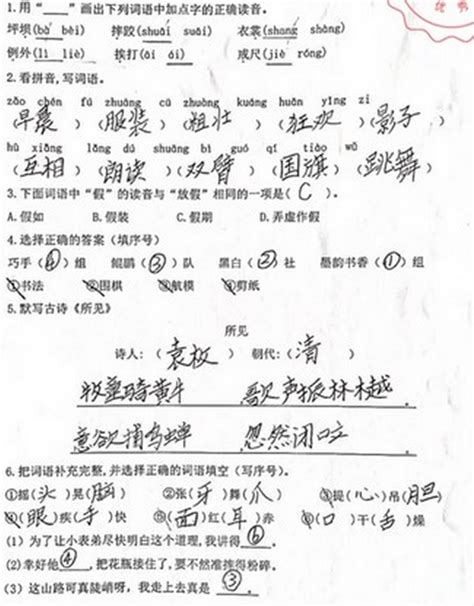 1.用“____”画出下列词语中加点字的正确读音。
坪坝(bà bèi) 摔跤(shuāi suāi) 衣裳(shang shàng)
例外(lì liè) 挨打(ái āi) 戒尺(jiè róng)
2.看拼音,写词语。
zǎo chén fú zhuāng cū zhuàng kuáng huān yǐng zi
(早晨)(服装)(粗壮)(狂欢)(影子)
hù xiāng lǎng dú shuāng bì guó qí tiào wǔ
(互相)(朗读)(双臂)(国旗)(跳舞)
3.下面词语中“假”的读音与“放假”相同的一项是(C)。
A.假如 B.假装 C.假期 D.弄虚作假
4.选择正确的答案(填序号)
巧手(④)组 鲲鹏(③)队 黑白(②)社 墨韵书香(①)组
①书法 ②围棋 ③航模 ④剪纸
5.默写古诗《所见》
所见
诗人:(袁枚) 朝代:(清)
牧童骑黄牛 歌声振林樾。
意欲捕鸣蝉 忽然闭口立。
6.把词语补充完整,并选择正确的词语填空(写序号)。
①摇(头)晃(脑) ②张(牙)舞(爪) ③提(心)吊(胆)
④(眼)疾(手)快 ⑤(面)红(耳)赤 ⑥(口)干(舌)燥
(1)为了让小表弟尽快明白这个道理,我讲得⑥。
(2)幸好他④,把花瓶接住了,要不然准摔得粉碎。
(3)这山路可真陡峭呀,我走上去真是③。